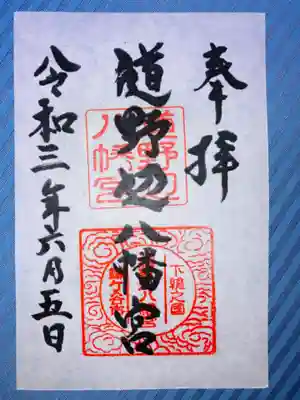 奉拝
道野辺八幡宮
令和三年六月五日
道野辺
八幡宮
下総之國